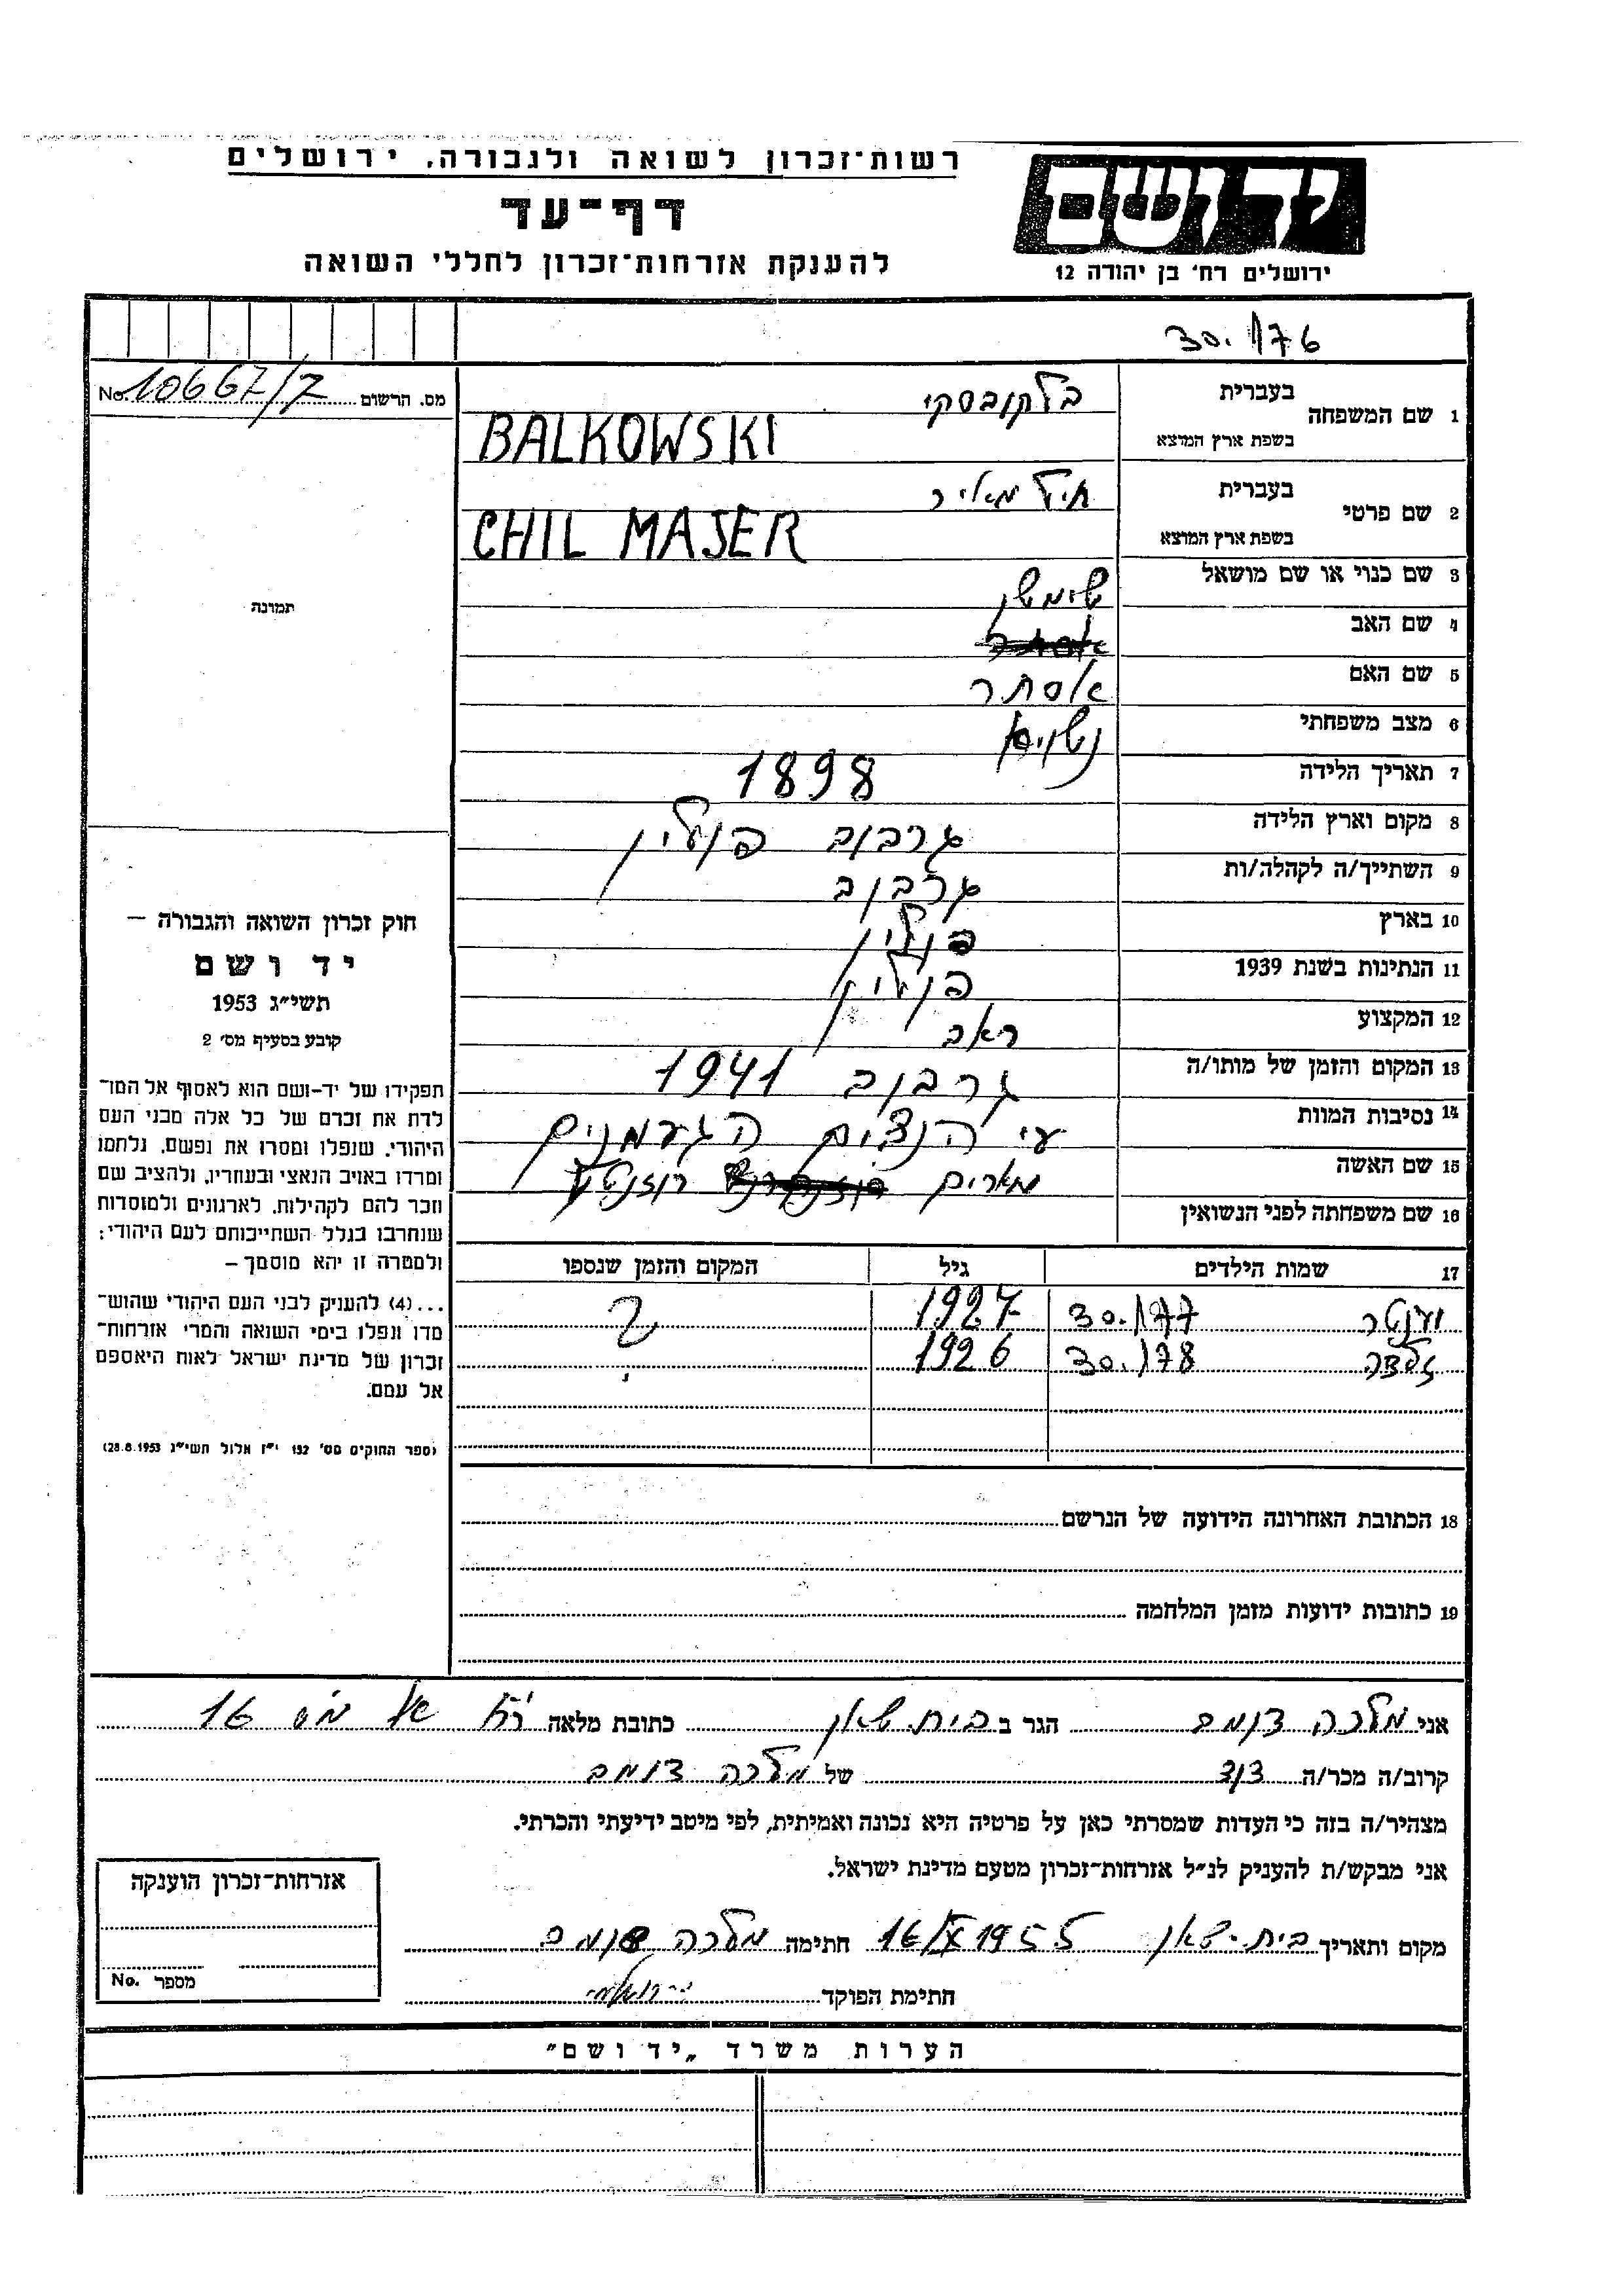 רשות-זכרון לשואה ולגבורה, ירושלים
דף-עד
להענקת אזרחות-זכרון לחללי השואה
יד ושם
ירושלים רח' בן יהודה 12
30.1/76
No. 10667/7 מס. הרשום
1 שם המשפחה
בעברית
בלקובסקי
בשפת ארץ המוצא
BALKOWSKI
2 שם פרטי
בעברית
חיל מאיר
בשפת ארץ המוצא
CHIL MAJER
3 שם כנוי או שם מושאל
שימשן
4 שם האב
5 שם האם אסתר
6 מצב משפחתי
7 תאריך הלידה 1898
8 מקום וארץ הלידה גרבוב פולין
9 השתייך/ה לקהלה/ות גרבוב
10 בארץ פולין
11 הנתינות בשנת 1939 פולין
12 המקצוע ראב
13 המקום והזמן של מותו/ה גרבוב 1941
14 נסיבות המוות עי הנצים הגעמנים
15 שם האשה מארים
16 שם משפחתה לפני הנשואין
17 שמות הילדים גיל המקום והזמן שנספו
30.1/77 1927 ?
זלדה 30.1/78 1926
18 הכתובת האחרונה הידועה של הנרשם
19 כתובות ידועות מזמן המלחמה
תמונה
חוק זכרון השואה והגבורה –
יד ושם
תשי"ג 1953
קובע בסעיף מס' 2
תפקידו של יד-ושם הוא לאסוף אל המו-
לדת את זכרם של כל אלה מבני העם
היהודי, שנפלו ומסרו את נפשם, נלחמו
ומרדו באויב הנאצי ובעוזריו, ולהציב שם
וזכר להם לקהילות, לארגונים ולמוסדות
שנחרבו בגלל השתייכותם לעם היהודי;
ולמטרה זו יהא מוסמך –
...(4) להעניק לבני העם היהודי שהוש-
מדו ונפלו בימי השואה והמרי אזרחות-
זכרון של מדינת ישראל לאות היאספם
אל עמם.
(ספר החוקים מס' 132 י"ז אלול תשי"ג 28.8.1953)
אני מלכה דומב הגר ב בית שאן כתובת מלאה 16
קרוב/ה מכר/ה דוד של מלכה דומב
מצהיר/ה בזה כי העדות שמסרתי כאן על פרטיה היא נכונה ואמיתית, לפי מיטב ידיעתי והכרתי.
אני מבקש/ת להעניק לנ"ל אזרחות-זכרון מטעם מדינת ישראל.
מקום ותאריך בית-שאן 16/X 1955 חתימה מלכה דומב
חתימת הפוקד
אזרחות-זכרון הוענקה
No. מספר
הערות משרד „יד ושם"